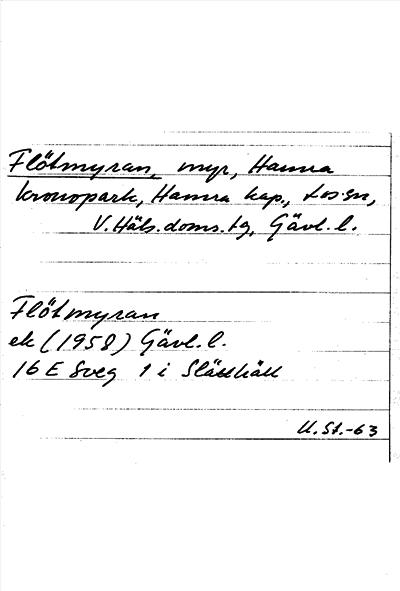 Flötmyran, myr, Hamra
kronopark, Hamra kap., Los sn,
V. Häls. doms. tg, Gävl. l.
Flötmyran
ek (1958) Gävl. l.
16 E Sveg 1 i
U. St. -63